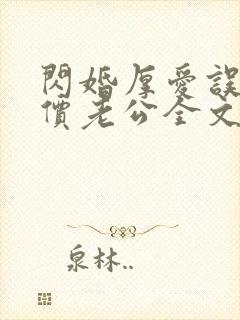 閃婚厚愛誤
價老公全文
泉林..